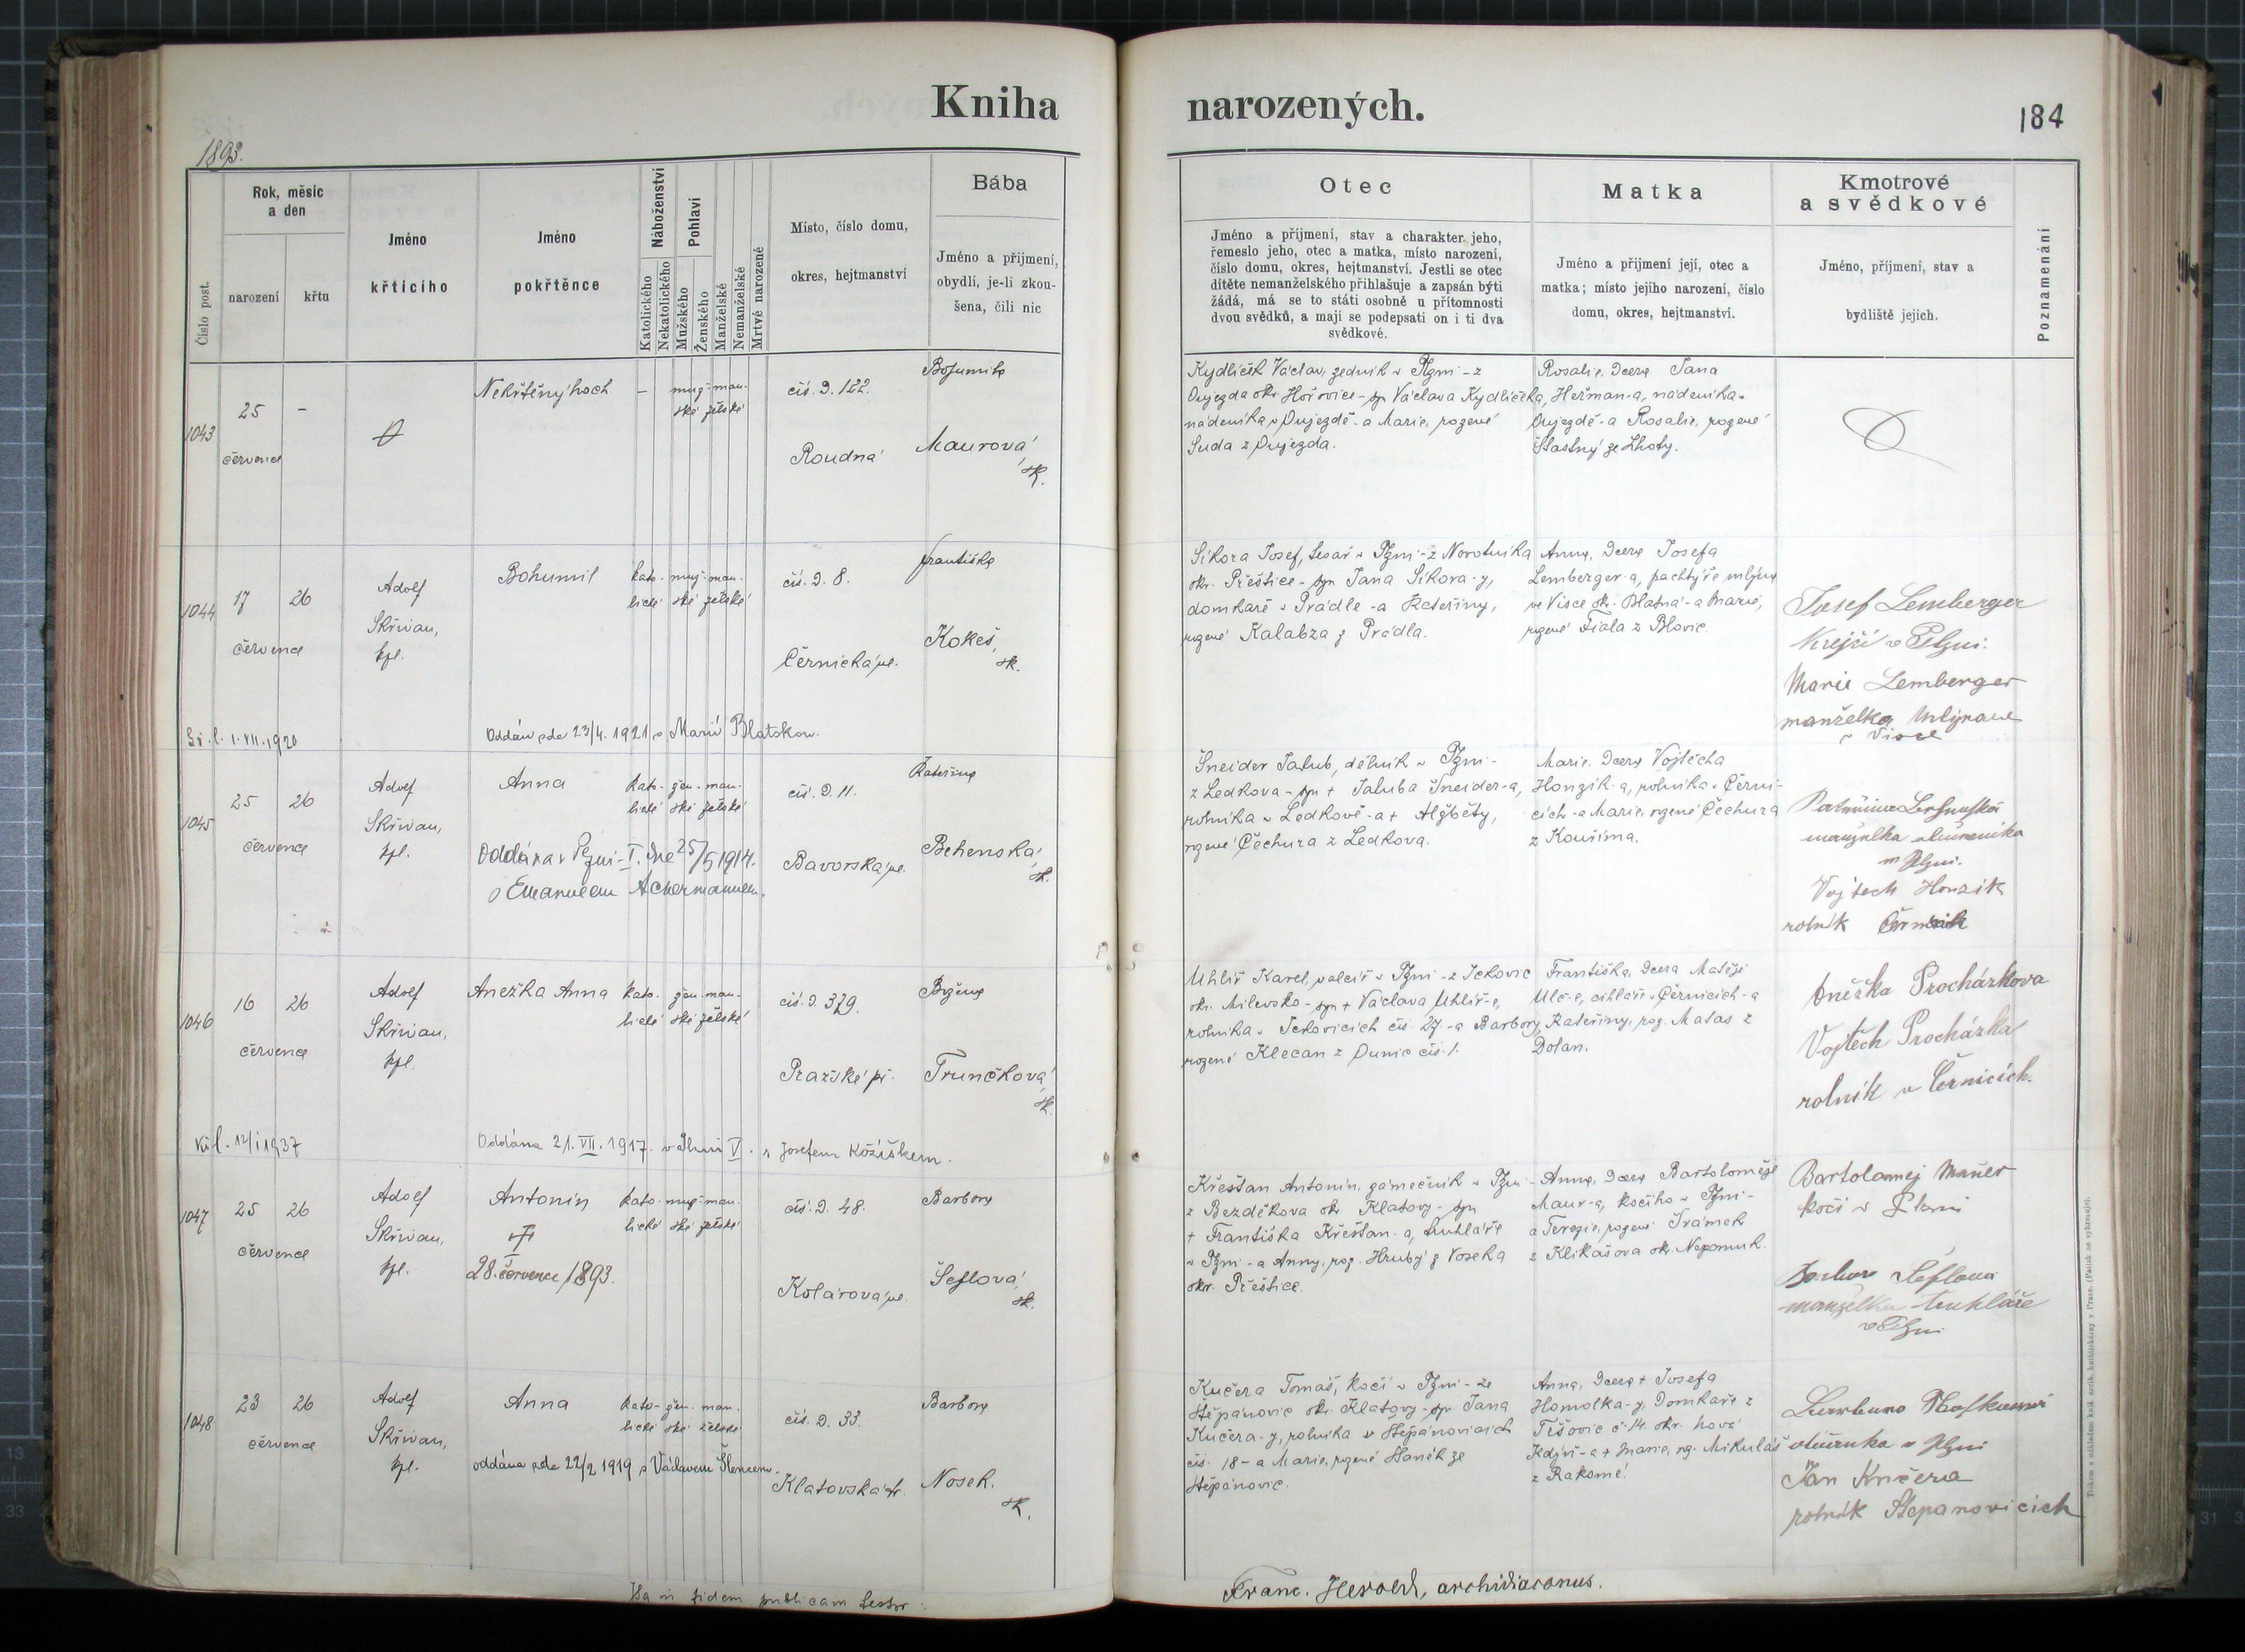 Kniha narozených.
184
1893.
Číslo post.
Rok, měsíc
a den
narození
křtu
Jméno
křtícího
Jméno
pokřtěnce
Náboženství
Katolického
Nekatolického
Pohlaví
Mužského
Ženského
Manželské
Nemanželské
Mrtvě narozené
Místo, číslo domu,
okres, hejtmanství
Bába
Jméno a příjmení,
obydlí, je-li zkou-
šena, čili nic
Otec
Jméno a příjmení, stav a charakter jeho,
řemeslo jeho, otec a matka, místo narození,
číslo domu, okres, hejtmanství. Jestli se otec
dítěte nemanželského přihlašuje a zapsán býti
žádá, má se to státi osobně u přítomnosti
dvou svědků, a mají se podepsati on i ti dva
svědkové.
Matka
Jméno a příjmení její, otec a
matka; místo jejího narození, číslo
domu, okres, hejtmanství.
Kmotrové
a svědkové
Jméno, příjmení, stav a
bydliště jejich.
Poznamenání
1043
25 -
července
Nekřtěný hoch
-
muž- man-
ské želské
čís. D. 122.
Roudná
Bohumila
Maurová,
zk.
Kydlíček Václav, zedník v Plzni - z
Oujezda okr. Hořovice - syn Václava Kydlíčka,
nádeníka v Oujezdě - a Marie, rozené
Suda z Oujezda.
Rosalie, dcera Jana
Heřman-a, nádeníka v
Oujezdě - a Rosalie, rozené
Šťastný ze Lhoty.
1044
17 26
července
Adolf
Skřivan,
kpl.
Bohumil
kato- muž- man-
lické ské želské
čís. D. 8.
Černická ul.
Františka
Kokeš,
zk.
Sikora Josef, tesař v Plzni - z Novotníka
okr. Přeštice - syn Jana Sikora-y,
domkaře v Prádle - a Kateřiny,
rozené Kalabza z Prádla.
Anna, dcera Josefa
Lemberger-a, pachtýře mlýna
ve Visce okr. Blatná - a Marie,
rozené Fiala z Blovic.
Josef Lemberger
Krejčí v Plzni.
Marie Lemberger
manželka mlynáře
v Visce
Sř. l. 1. VII. 1920
Oddán dne 23/4. 1921 s Marií Blatskou.
1045
25 26
července
Adolf
Skřivan,
kpl.
Anna
kato- žen- man-
lické ské želské
Oddána v Plzni - I. dne 25/5 1914.
s Emanuelem Achermannem.
čís. D. 11.
Bavorská ul.
Kateřina
Behenská,
zk.
Šneider Jakub, dělník v Plzni -
z Ledkova - syn + Jakuba Šneider-a,
rolníka v Ledkově - a + Alžběty,
rozené Čechura z Ledkova.
Marie, dcera Vojtěcha
Honzík-a, rolníka v Černi-
cích - a Marie, rozené Čechura
z Kouřima.
manželka
v Plzni.
Vojtech Honzik
rolník
1046
16 26
července
Adolf
Skřivan,
kpl.
Anežka Anna
kato- žen- man-
lické ské želské
čís. D. 379.
Pražské př.
Božena
Trunčková,
zk.
Uhlíř Karel, valcíř v Plzni - z Jickovic
okr. Milevsko - syn + Václava Uhlíř-e,
rolníka v Jickovicích čís. 27. - a Barbory,
rozené Klecan z Dunic čís. 1.
Františka, dcera Matěje
Ulč-e, cihláře v Černicích - a
Kateřiny, roz. Matas z
Dolan.
Anežka Procházkova
Vojtěch Procházka
rolník v Černicích.
Kř. l. 12/I 1937
Oddána 21. VII. 1917. v Plzni V. s Josefem Kožíškem.
1047
25 26
července
Adolf
Skřivan,
kpl.
Antonín
kato- muž- man-
lické ské želské
28. července 1893.
čís. D. 48.
Kolárova ul.
Barbora
Šeflová,
zk.
Křesťan Antonín, zámečník v Plzni -
z Bezděkova okr. Klatovy - syn
+ Františka Křesťan-a, truhláře
v Plzni - a Anny, roz. Hrubý z Voseka
okr. Přeštice.
Anna, dcera Bartoloměje
Maur-a, kočího v Plzni -
a Terezie, rozené Šrámek
z Klikařova okr. Nepomuk.
Bartolomej Mauer
kočí v Plzni
Barbora Šeflova
manželka truhláře
v Plzni
1048
23 26
července
Adolf
Skřivan,
kpl.
Anna
kato- žen- man-
lické ské želské
oddána dne 22/2 1919 s Václavem Šlencem.
čís. D. 33.
Klatovská tř.
Barbora
Nosek.
zk.
Kučera Tomáš, kočí v Plzni - ze
Štěpánovic okr. Klatovy - syn Jana
Kučera-y, rolníka v Štěpánovicích
čís. 18 - a Marie, rozené Haněk ze
Štěpánovic.
Anna, dcera + Josefa
Homolka-y, domkaře z
Těšovic č. 14. okr. Nová
Kdyň - a + Marie, roz. Mikuláš
z Rakomě.
v Plzni
Jan Kučera
rolník Štepanovicich
Ita in fidem publicam testor:
Franc. Herold, archidiaconus.